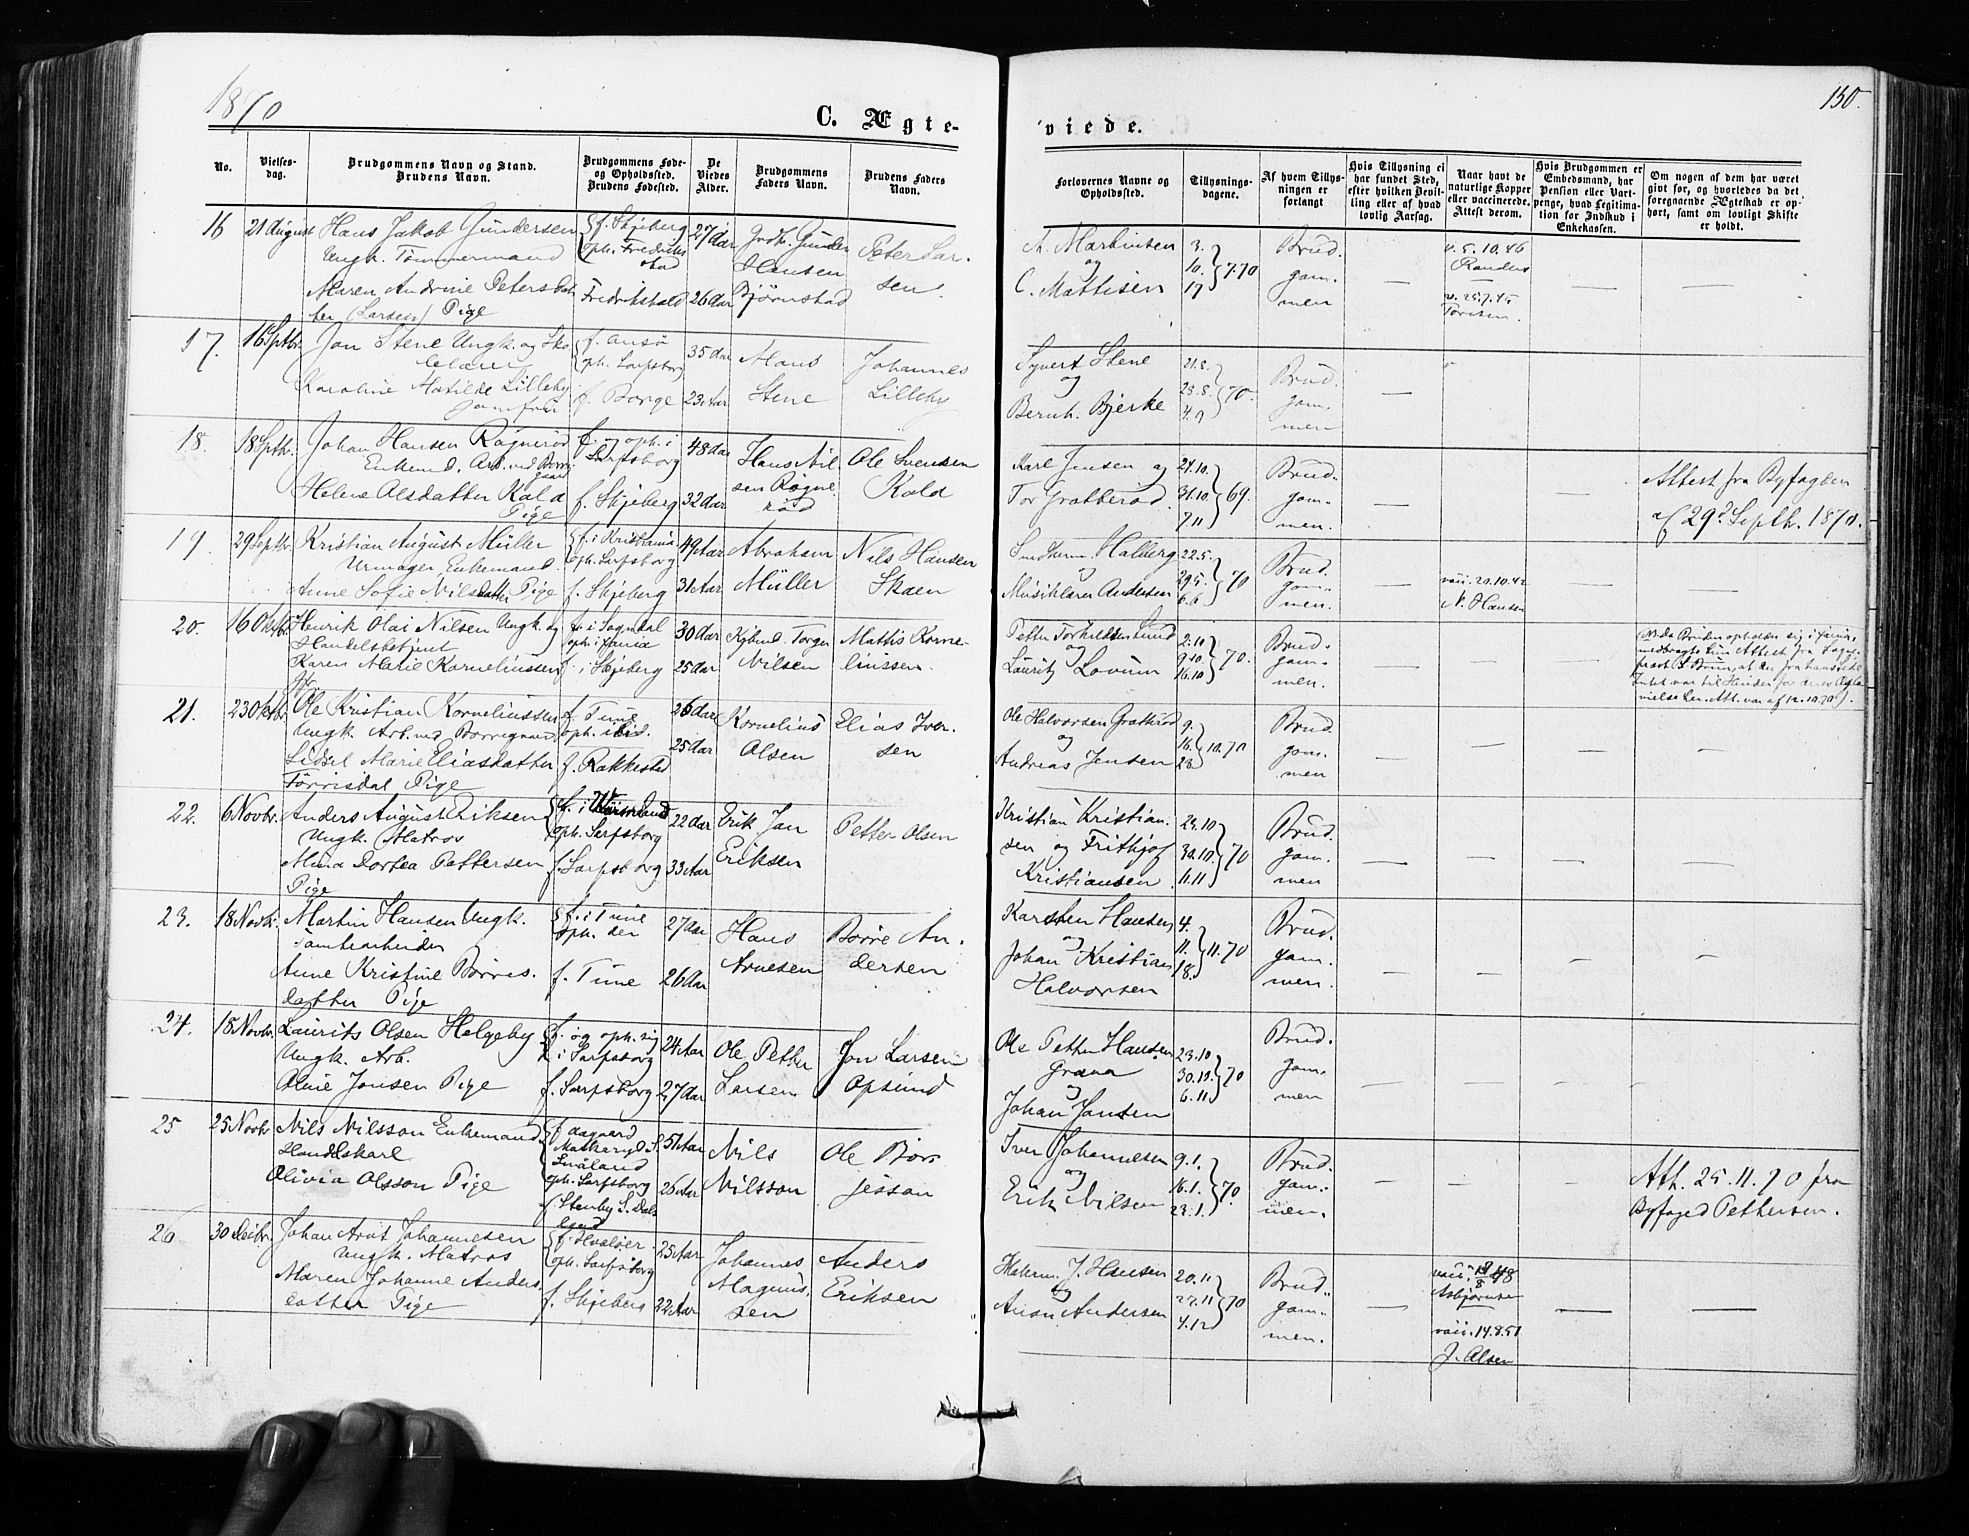 1870
C. Ægte-
viede.
150.
No.
Vielses-
dag.
Brudgommens Navn og Stand.
Brudens Navn.
Brudgommens Føde-
og Opholdssted.
Brudens Fødested.
De
Viedes
Alder.
Brudgommens
Faders Navn.
Brudens Faders
Navn.
Forlovernes Navne og
Opholdssted.
Tillysnings-
dagene.
Af hvem Tillys-
ningen er
forlangt
Hvis Tillysning ei
har fundet Sted,
efter hvilken Bevil-
ling eller af hvad
lovlig Aarsag.
Naar havt de
naturlige Kopper
eller vaccinerede.
Attest derom.
Hvis Brudgommen er
Embedsmand, har
Pension eller Vart-
penge, hvad Legitima-
tion for Indskud i
Enkekassen.
Om nogen af dem har været
givt før, og hvorledes da det
foregaaende Ægteskab er op-
hørt, samt om lovligt Skifte
er holdt.
16 21 August Hans Jakob Gundersen
Ungk. Tømmermand
Maren Andrine Petersdat-
ter (Larsen) Pige
f. Skjeberg
oph. Fredrik-
stad
Fredrikstad
27 Aar
26 Aar
Grdb. Gunder
Hansen
Bjørnstad
Peter Lar-
sen.
A. Martinsen
og
C. Mattisen
3.
10. 7.70
17
Brud-
gom-
men
v. 5.10.46
Randers
v. 25.7.45
17. 16 Septbr. Jon Stene Ungk. og Sko-
Karoline Matilde Lilleby
Jomfru
oph. Sarpsborg
f. Borge
35 Aar
23 Aar
Mons
Stene
Johannes
Lilleby
Syvert Stene
og
Bernh. Bjerke
21.8.
28.8. 70.
4.9
Brud-
gom-
men
18. 18 Septb. Johan Hansen Rognerød
Enkemd. Arb. ved Borre-
gaard
Helene Olsdatter Kold
Pige
f. og oph. i
Sarpsborg
f. Skjeberg
48 Aar
32 Aar
Hans Nil-
sen Rogne-
rød
Ole Svensen
Kold
Karl Jensen og
Tor Gratterød.
24.10.
31.10. 69.
7.11
Brud-
gom-
men.
Attest fra Byfogden
af 29d Septb. 1870.
19. 29 Septbr. Kristian August Müller
Urmager, Enkemand
Anne Sofie Nilsdatter Pige
f. i Kristiania
oph. Sarpsborg
f. Skjeberg
49 Aar
31 Aar
Abraham
Müller
Nils Hansen
Skaen
Halberg
og
Musiklærer Andersen
22.5.
29.5. 70
6.6
Brud-
gom-
men.
vaii. 20.10.42
N. Hansen
20. 16 Oktbr. Henrik Olai Nilsen Ungk. og
Handelsbetjent
Karen Marie Korneliussen
Jfr.
f. i Sogndal
f. i Skjeberg
30 Aar
25 Aar
Kjbmd. Torger
Nilsen
Mattis Korne-
liussen.
Petter Torkildsen Lund
og
Lauritz Lovum
2.10
9.10. 70.
16.10
Brud-
gom-
men.
21. 23 Oktbr. Ole Kristian Korneliussen
Ungk. Arb. ved Borregaard
Lidsel Marie Eliasdatter
Torrisdal Pige
f. Tune
oph. ibid.
f. Rakkestad
26 Aar
25 Aar
Kornelius
Olsen
Elias Iver-
sen
Ole Halvorsen Gratterød
og
Andreas Jensen
9.
16. 10.70
23.
Brud-
gom-
men
22. 6 Novbr. Anders August Eriksen
Ungk. Matros
Alma Dortea Pettersen
Pige
oph. Sarpsborg
f. Sarpsborg
22 Aar
33 Aar
Erik Jan
Eriksen
Petter Olsen
Kristian Kristian-
sen og Frithjof
Kristiansen
23.10
30.10. 70
6.11
Brud-
gom-
men
23. 18 Novbr. Martin Hansen Ungk.
Tomtearbeider
Anne Kristine Børres-
datter Pige
f. i Tune
oph. der
f. Tune
27 Aar
26 Aar
Hans
Arnesen
Børre An-
dersen
Karsten Hansen
og
Johan Kristian
Halvorsen
4.
11. 11.70
18.
Brud-
gom-
men.
24. 18 Novbr. Laurits Olsen Helgeby
Ungk. Arb.
Oline Jonsen Pige
f. og oph. sig
i Sarpsborg
f. Sarpsborg
24 Aar
27 Aar
Ole Petter
Larsen
Jon Larsen
Opsund
Ole Petter Hansen
Grana
og
Johan Jansen
23.10
30.10. 70
6.11
Brud-
gom-
men
25 25 Novbr Nils Nilsson Enkemand
Handelskarl
Olivia Olsson Pige
Småland
oph. Sarpsborg
f. Stenby S. Dals-
land
51 Aar
26 Aar
Nils
Nilsson
Ole Bør-
jesson
Iver Johannesen
og
Erik Nilsen
9.1.
16.1. 70
23.1.
Brud-
gom-
men.
Att. 25.11.70 fra
Byfoged Pettersen.
26 30 Decbr. Johan Arnt Johannesen
Ungk. Matros
Maren Johanne Anders-
datter Pige
f. Hvaløer.
oph. Sarpsborg
f. Skjeberg
25 Aar
22 Aar
Johannes
Magnus-
sen
Anders
Eriksen
J. Hansen
og
Anton Andersen
20.11
27.11 70
4.12
Brud-
gom-
men.
Asbjørnsen
vaii. 14.8.51
J. Olsen